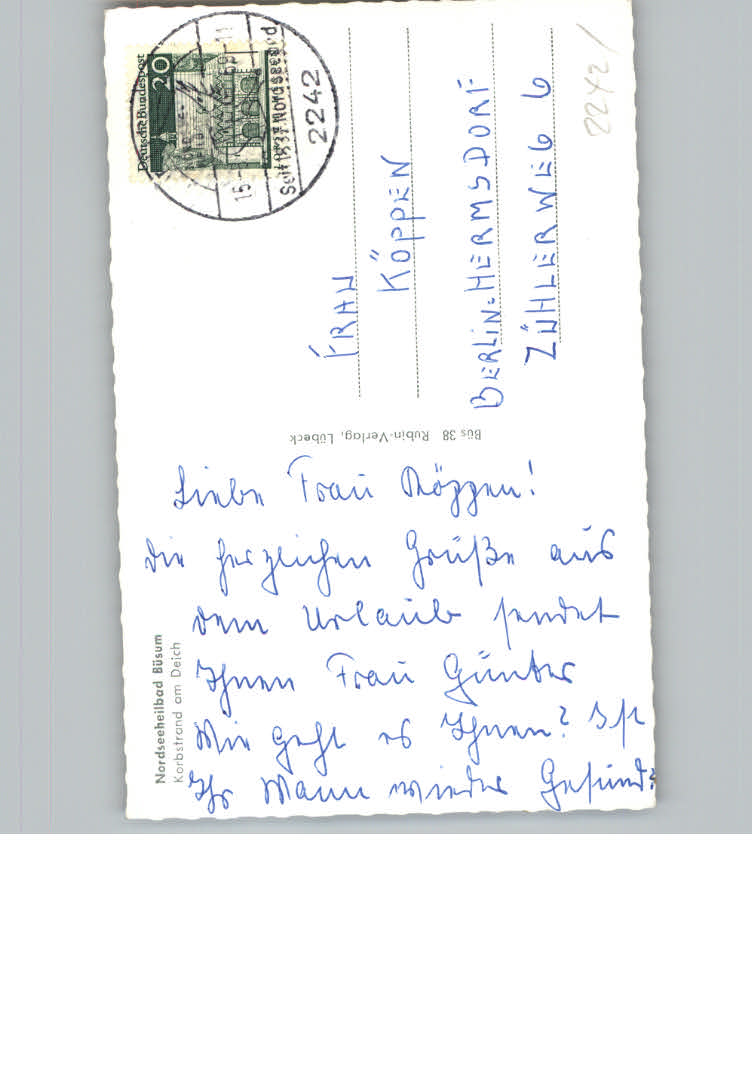 Liebe Frau Köppen!
Die herzlichen Grüße aus
dem Urlaub sendet
Ihnen Frau Günter
Wie geht es Ihnen? Ist
Ihr Mann wieder Gesund?
FRAU
KÖPPEN
BERLIN-HERMSDORF
ZÜHLERWEG 6
Nordseeheilbad Büsum
Korbstrand am Deich
Büs 38 Rubin-Verlag, Lübeck
Deutsche Bundespost
20
2242
Seit 1837 Nordseebad
15
11
2242 /